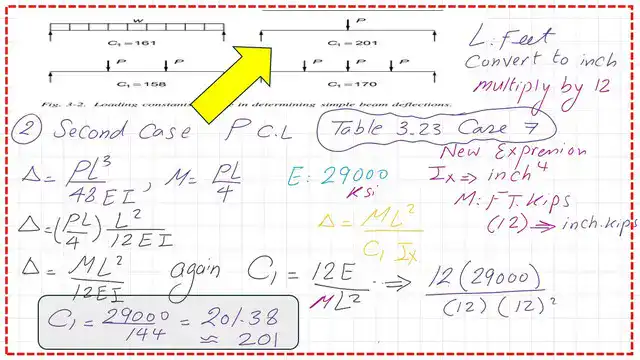 w
C₁ = 161
P
C₁ = 201
P P
C₁ = 158
P P P
C₁ = 170
Fig. 3-2. Loading constants in determining simple beam deflections.
L: Feet
Convert to inch
multiply by 12
② Second Case P C.L
Table 3.23 Case 7
New Expression
Ix ⇒ inch⁴
M: FT. kips
(12) ⇒ inch.kips
Δ = PL³/48EI, M = PL/4
E: 29000
Ksi
Δ = (PL/4) L²/12EI
Δ = ML²/C₁ Ix
Δ = ML²/12EI again C₁ = 12E/ML² ⇒ 12(29000)/(12)(12)²
C₁ = 29000/144 = 201.38
≈ 201